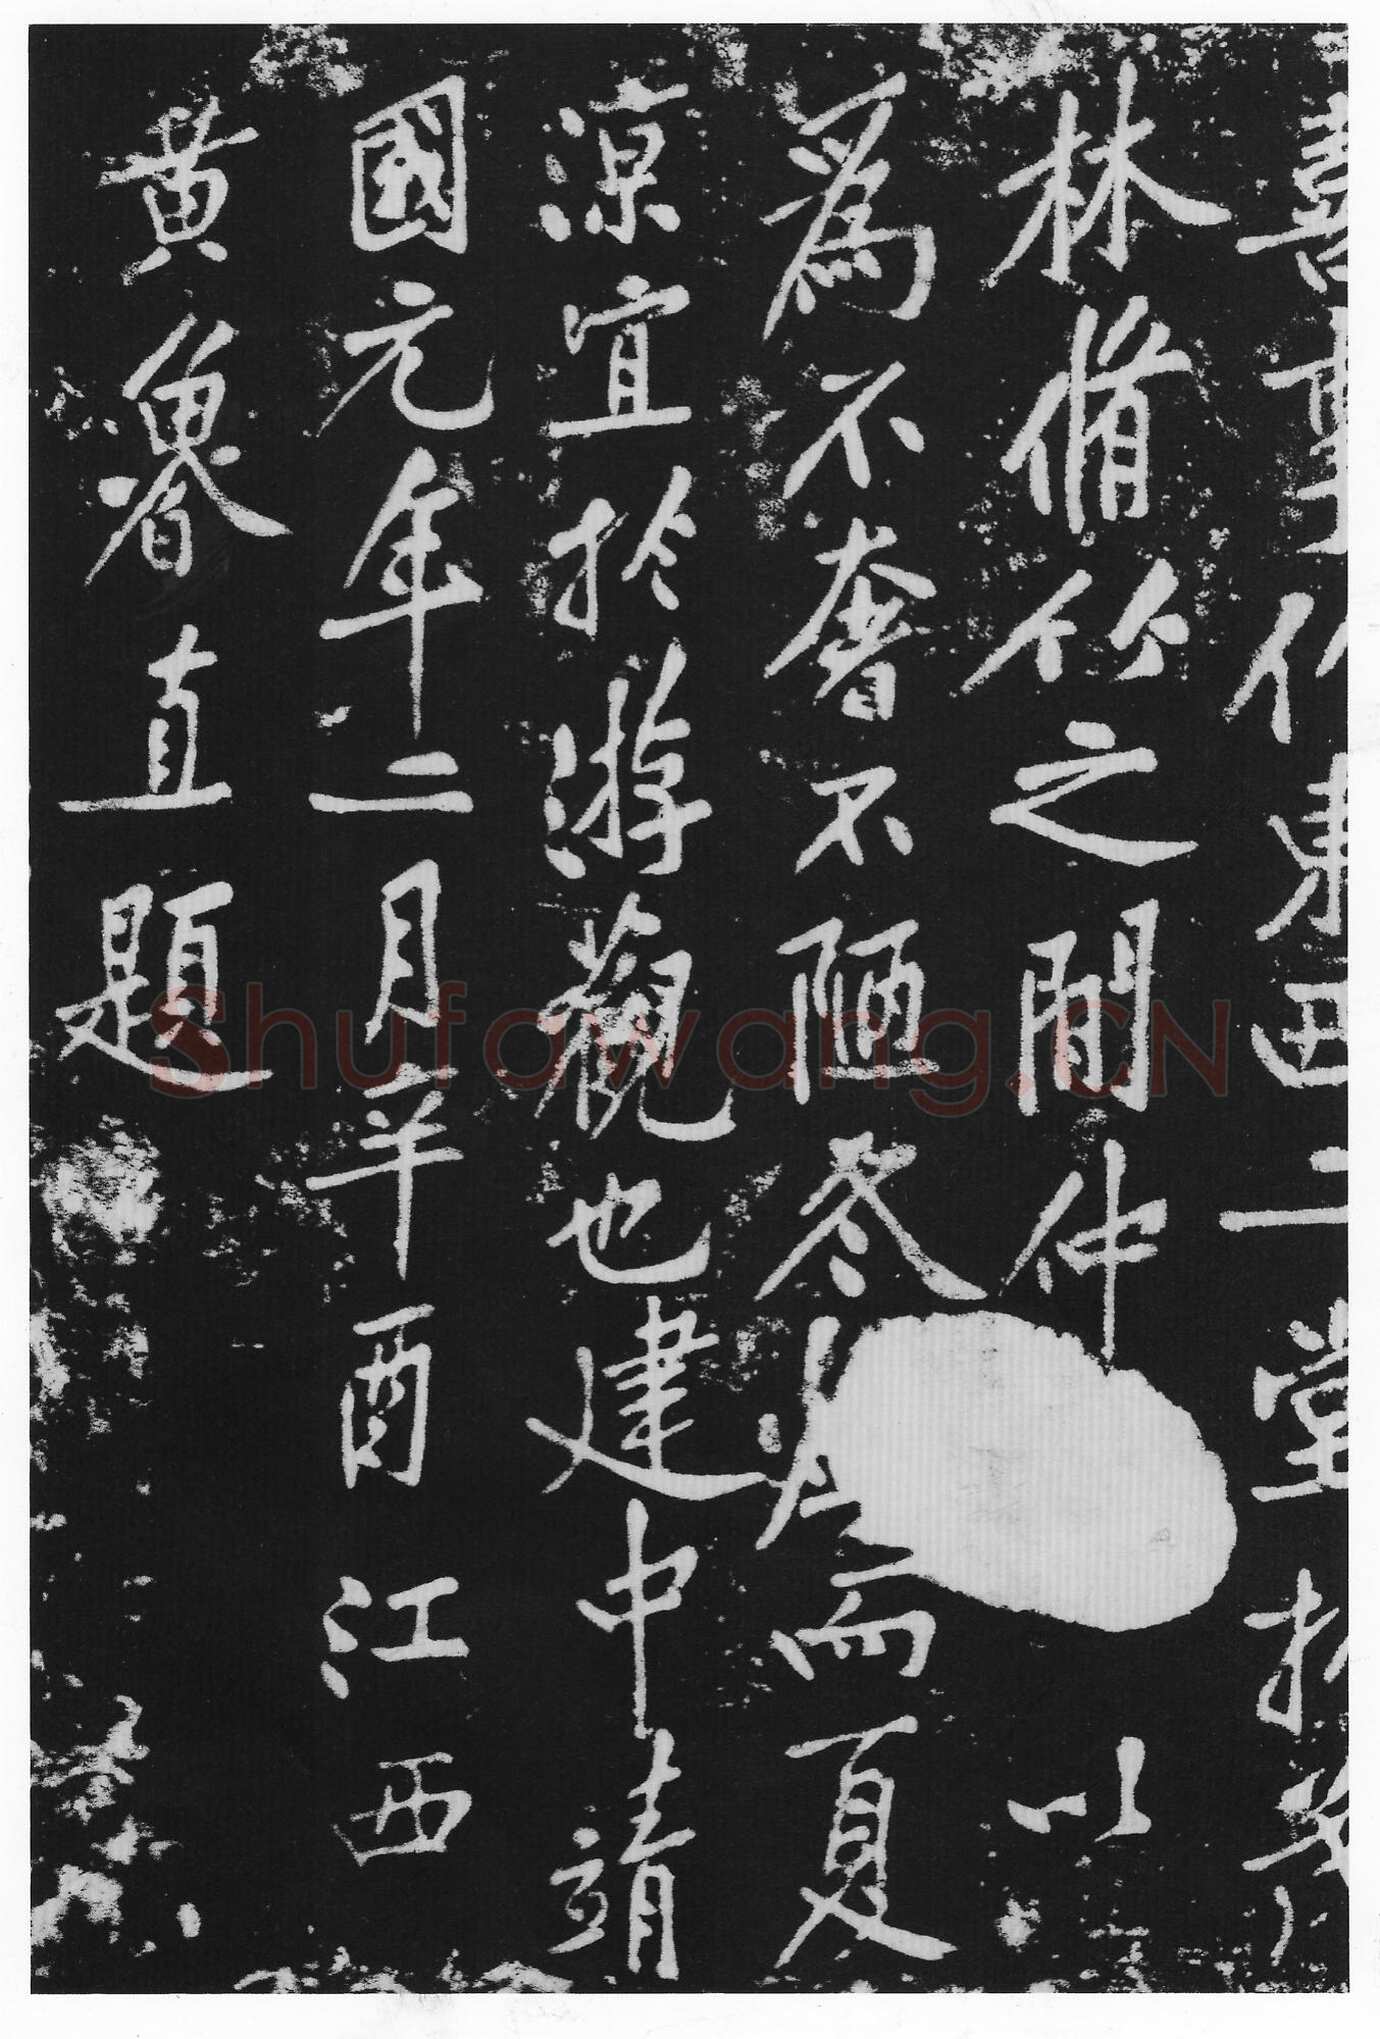 喜事作東西二堂於茂
林脩竹之閒仲 以
爲不奢不陋冬 而夏
涼宜於游觀也建中靖
國元年二月辛酉江西
黃魯直題
Shufawang.CN